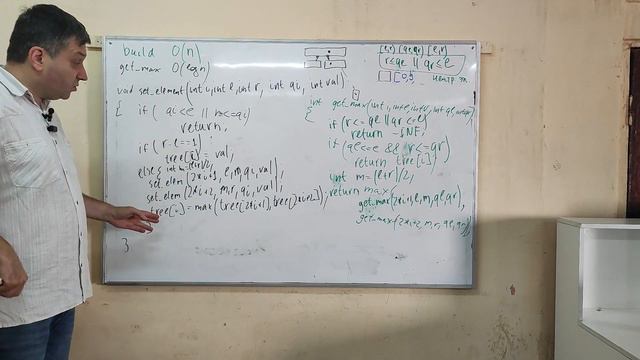 build O(n)
get_max O(log n)
void set_element(int i, int l, int r, int qi, int val)
{ if ( qi<l || r<=qi)
return;
if ( r-l==1)
tree[i] = val;
else { int m=(l+r)/2;
set_elem (2*i+1, l, m, qi, val);
set_elem (2*i+2, m, r, qi, val);
tree[i] = max(tree[2*i+1], tree[2*i+2]);
}
[l,r) [ql,qr) [l,r)
r≤ql || qr≤l
[0,9)
int get_max(int i, int l, int r, int ql,
{
if (r<=ql || qr<=l)
return -INF;
if (ql<=l && r<=qr)
return tree[i];
int m=(l+r)/2;
return max(
get_max(2*i+1, l, m, ql, qr),
get_max(2*i+2, m, r, ql, qr)